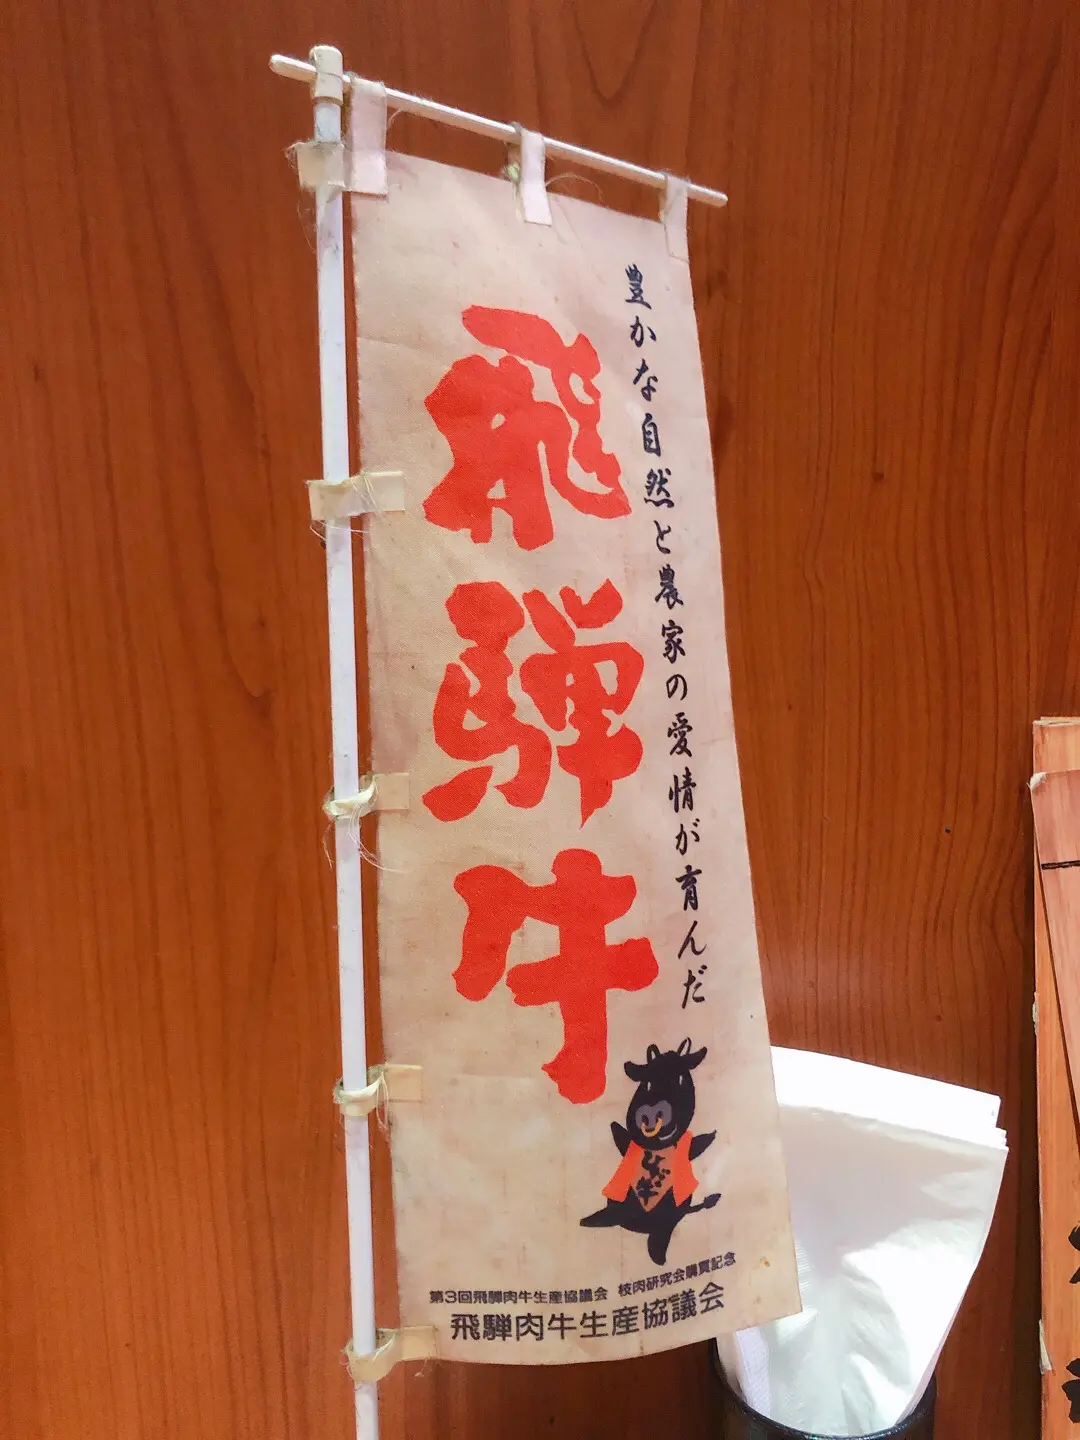 豊かな自然と農家の愛情が育んだ
飛騨牛
ひだ牛
第3回飛騨肉牛生産協議会 枝肉研究会購買記念
飛騨肉牛生産協議会